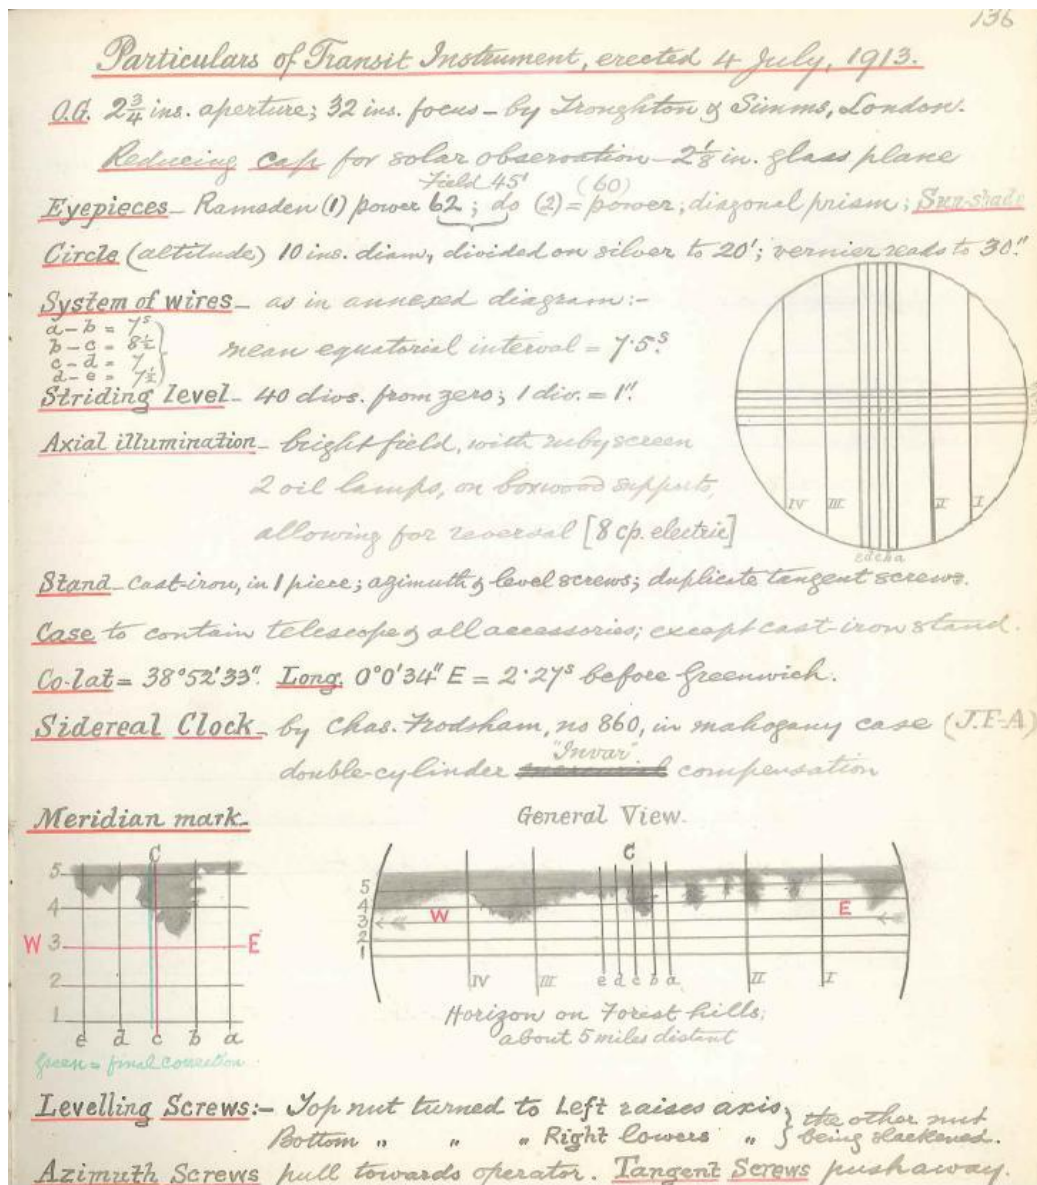 136
Particulars of Transit Instrument, erected 4 July, 1913.
O.G. 2¾ ins. aperture; 32 ins. focus – by Troughton & Simms, London.
Reducing cap for solar observation – 2⅛ in. glass plane
Field 45' (60)
Eyepieces – Ramsden (1) power 62; do (2) = power; diagonal prism; Sun-shade
Circle (altitude) 10 ins. diam, divided on silver to 20'; vernier reads to 30".
System of wires – as in annexed diagram:-
a – b = 7ˢ
b – c = 8½
c – d = 7
d – e = 7½
mean equatorial interval = 7·5ˢ.
Striding level – 40 divs. from zero; 1 div. = 1".
Axial illumination – bright field, with ruby screen
2 oil lamps, on boxwood supports,
allowing for reversal [8 cp. electric]
IV III II I
e d c b a
Stand – cast-iron, in 1 piece; azimuth & level screws; duplicate tangent screws.
Case to contain telescope & all accessories; except cast-iron stand.
Co-lat = 38°52'33". Long. 0°0'34" E = 2·27ˢ before Greenwich.
Sidereal Clock – by Chas. Frodsham, no 860, in mahogany case (J.F-A)
"Invar"
double-cylinder mercurial compensation
Meridian mark –
C
5
4
W 3 E
2
1
e d c b a
Green = final correction
General View.
C
5
4
W E
3
2
1
IV III e d c b a II I
Horizon on Forest hills,
about 5 miles distant
Levelling Screws:- Top nut turned to Left raises axis } the other nut
Bottom " " " Right lowers " } being slackened.
Azimuth Screws pull towards operator. Tangent Screws push away.